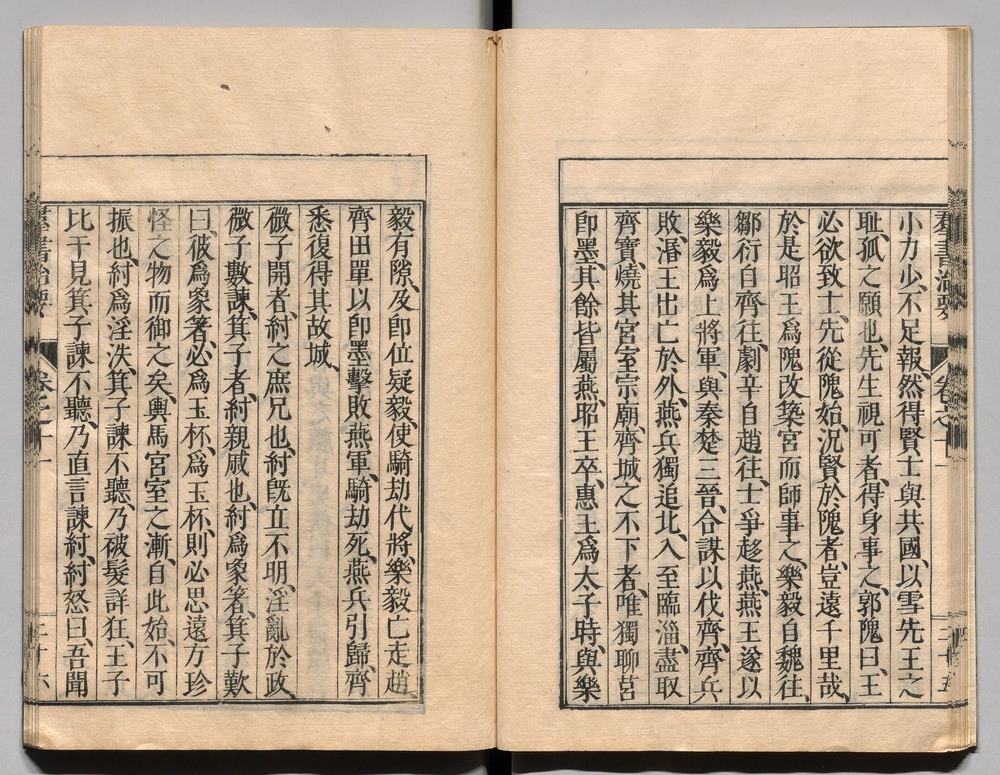 羣書治要 卷之十一 三十五
小力少、不足報、然得賢士與共國、以雪先王之
耻、孤之願也、先生視可者、得身事之、郭隗曰、王
必欲致士、先從隗始、況賢於隗者、豈遠千里哉、
於是昭王爲隗改築宮而師事之、樂毅自魏往、
鄒衍自齊往、劇辛自趙往、士爭趍燕、燕王遂以
樂毅爲上將軍、與秦楚三晉、合謀以伐齊、齊兵
敗、湣王出亡於外、燕兵獨追北、入至臨淄、盡取
齊寶、燒其宮室宗廟、齊城之不下者、唯獨聊莒
卽墨、其餘皆屬燕、昭王卒、惠王爲太子時、與樂
毅有隙、及卽位疑毅、使騎劫代將、樂毅亡走趙、
齊田單以卽墨擊敗燕軍、騎劫死、燕兵引歸、齊
悉復得其故城、
微子開者、紂之庶兄也、紂旣立不明、淫亂於政、
微子數諫、箕子者、紂親戚也、紂爲象箸、箕子歎
曰、彼爲象箸、必爲玉杯、爲玉杯、則必思遠方珍
怪之物而御之矣、輿馬宮室之漸、自此始、不可
振也、紂爲淫泆、箕子諫不聽、乃被髮詳狂、王子
比干見箕子諫不聽、乃直言諫紂、紂怒曰、吾聞
羣書治要 卷之十一 三十六